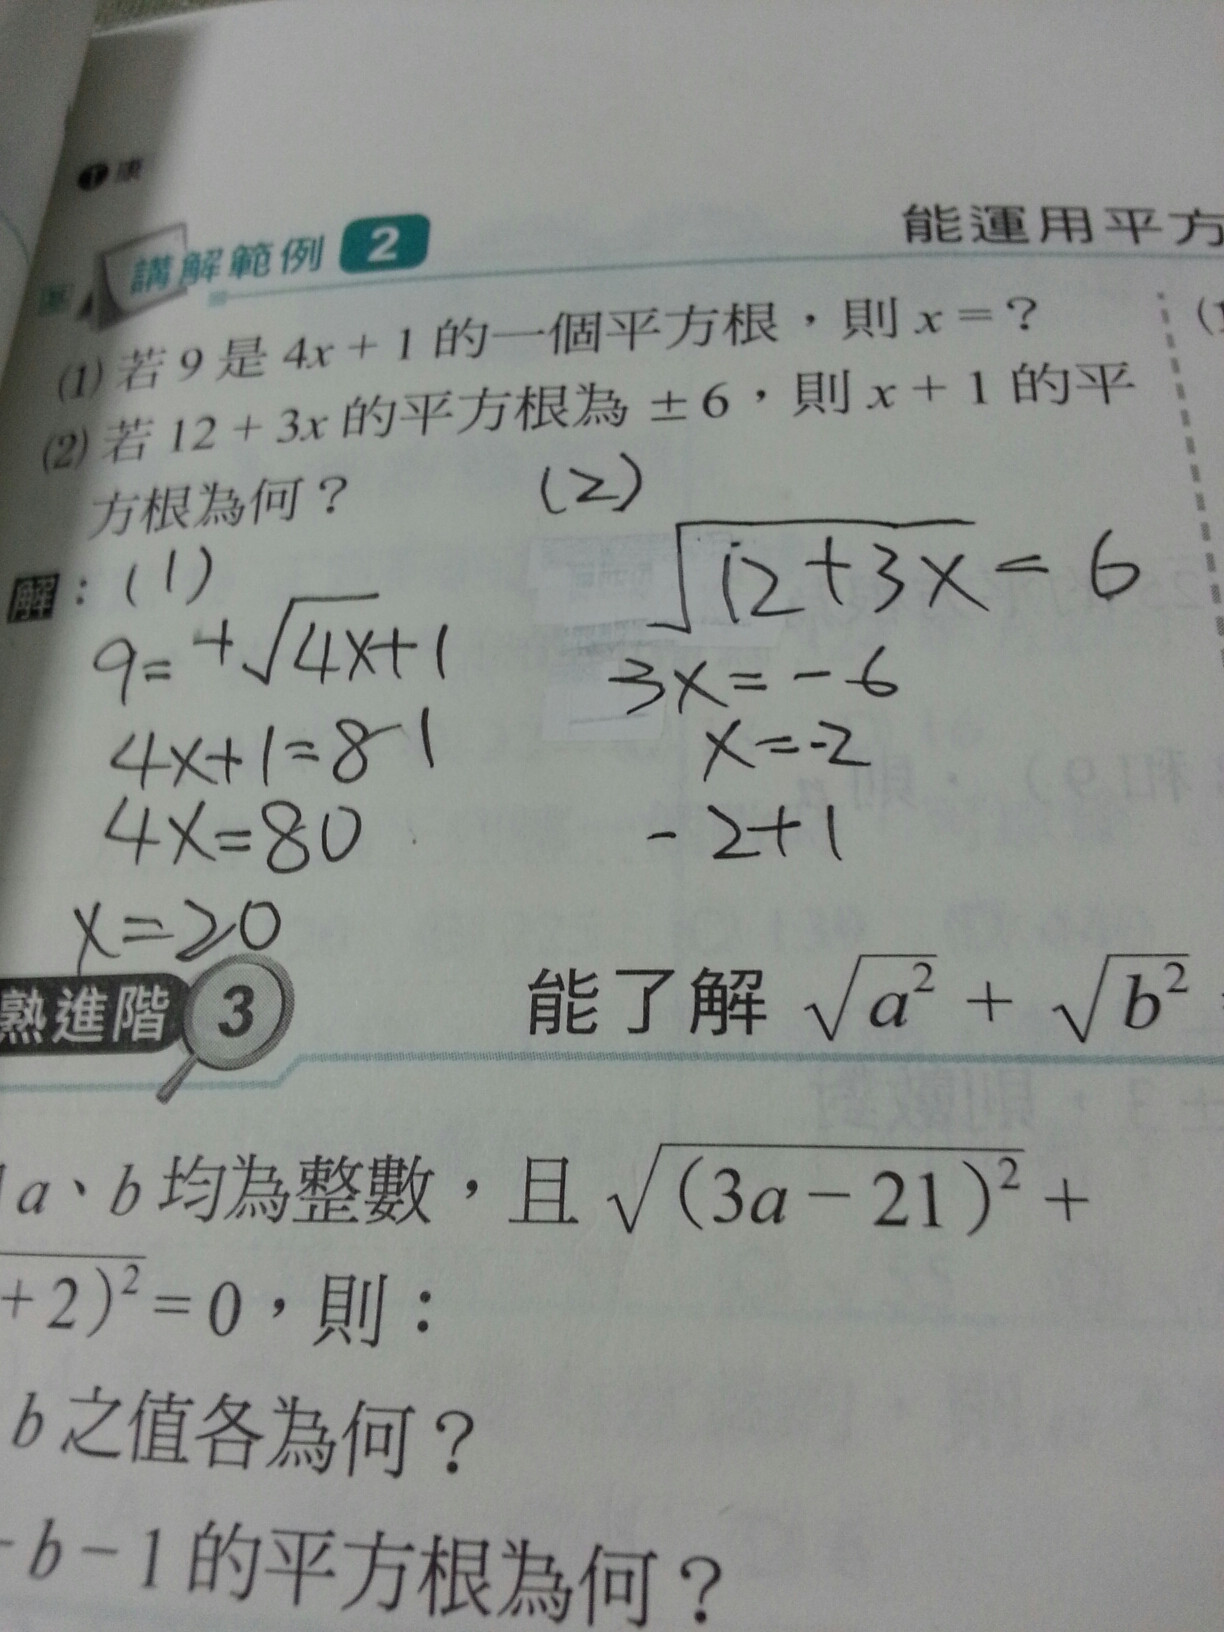 康
講解範例 2
能運用平方
(1) 若 9 是 4x + 1 的一個平方根，則 x = ?
(2) 若 12 + 3x 的平方根為 ± 6，則 x + 1 的平
方根為何？
解：(1)
9 = +√4x+1
4x+1=81
4x=80
x=20
(2)
√12+3x = 6
3x = -6
x=-2
-2+1
熟進階 3
能了解 √a² + √b²
a、b 均為整數，且 √(3a − 21)² +
+ 2)² = 0，則：
b 之值各為何？
- b − 1 的平方根為何？